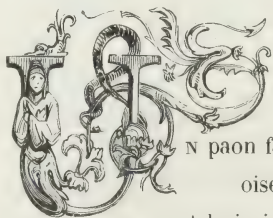 UN paon f
oise